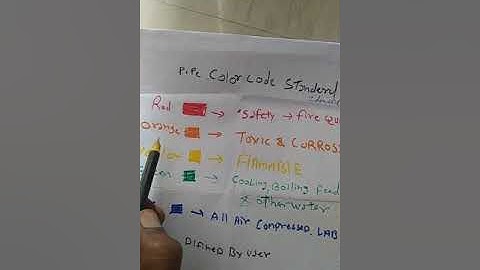 Pipe Color Code Standerd
Red → "Safety → fire
Orange → Toxic & CORROS
→ FlAMABLE
→ Cooling, Boiling Feed
& other water
→ All Air Compressed. LAB
Difined By user